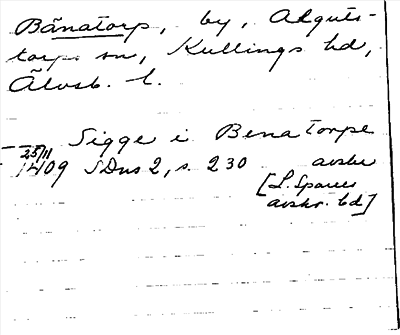 Bãnatorp, by, Alquts-
torps sn, Kullings hd,
Ãlvsb. l.
Sigge i Benatorpe
25/11
1409 SDns 2, s. 230 avskr
[L. Sparres
avskr. bd]